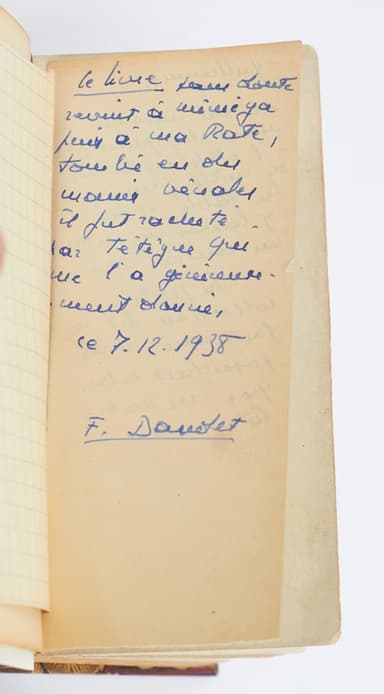 Ce livre sans doute
revint à miméga
puis à ma Rate,
tombé en des
mains vénales
il fut racheté
par Tétègue qui
me l'a généreuse-
ment donné,
ce 7.12.1938
F. Daudet